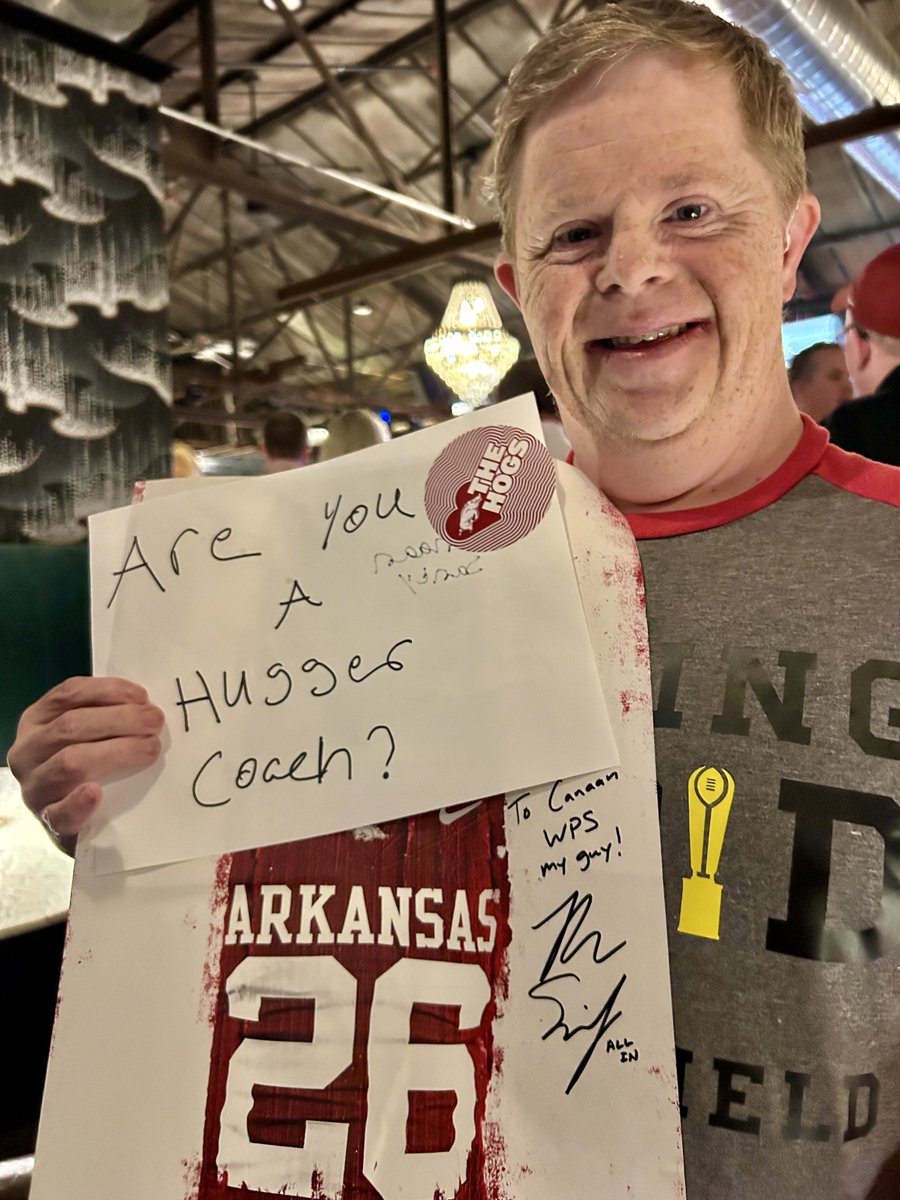 Are You
A
Hugger
Coach?
THE
HOGS
To Canaan
WPS
my guy!
ALL
IN
ARKANSAS
26
ING
IELD